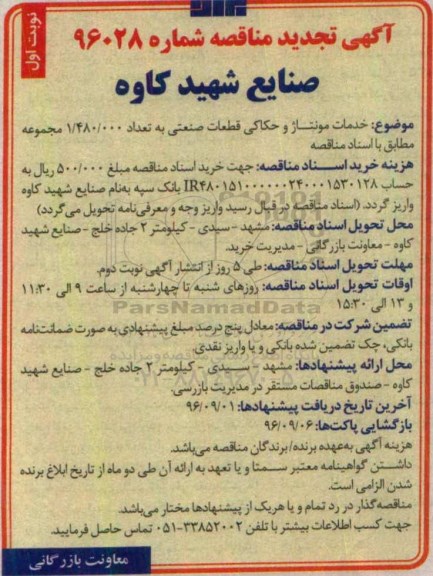 نوبت اول
آگهی تجدید مناقصه شماره ۹۶۰۲۸
صنایع شهید کاوه
موضوع: خدمات مونتاژ و حکاکی قطعات صنعتی به تعداد ۱/۴۸۰/۰۰۰ مجموعه
مطابق با اسناد مناقصه
هزینه خرید اسناد مناقصه: جهت خرید اسناد مناقصه مبلغ ۵۰۰/۰۰۰ ریال به
حساب IR۴۸۰۱۵۱۰۰۰۰۰۰۲۴۰۰۰۱۵۳۰۱۲۸ بانک سپه به‌نام صنایع شهید کاوه
واریز گردد. (اسناد مناقصه در قبال رسید واریز وجه و معرفی‌نامه تحویل می‌گردد)
محل تحویل اسناد مناقصه: مشهد - سیدی - کیلومتر ۲ جاده خلج - صنایع شهید
کاوه - معاونت بازرگانی - مدیریت خرید.
مهلت تحویل اسناد مناقصه: طی ۵ روز از انتشار آگهی نوبت دوم.
اوقات تحویل اسناد مناقصه: روزهای شنبه تا چهارشنبه از ساعت ۹ الی ۱۱:۳۰
و ۱۳ الی ۱۵:۳۰
ParsNamadData
تضمین شرکت در مناقصه: معادل پنج درصد مبلغ پیشنهادی به صورت ضمانت‌نامه
بانکی، چک تضمین شده بانکی و یا واریز نقدی.
محل ارائه پیشنهادها: مشهد - سیدی - کیلومتر ۲ جاده خلج - صنایع شهید
کاوه - صندوق مناقصات مستقر در مدیریت بازرسی.
آخرین تاریخ دریافت پیشنهادها: ۹۶/۰۹/۰۱
بازگشایی پاکت‌ها: ۹۶/۰۹/۰۶
هزینه آگهی به‌عهده برنده/برندگان مناقصه می‌باشد.
داشتن گواهینامه معتبر سمتا و یا تعهد به ارائه آن طی دو ماه از تاریخ ابلاغ برنده
شدن الزامی است.
مناقصه‌گذار در رد تمام و یا هریک از پیشنهادها مختار می‌باشد.
جهت کسب اطلاعات بیشتر با تلفن ۳۳۸۵۲۰۰۲-۰۵۱ تماس حاصل فرمایید.
معاونت بازرگانی